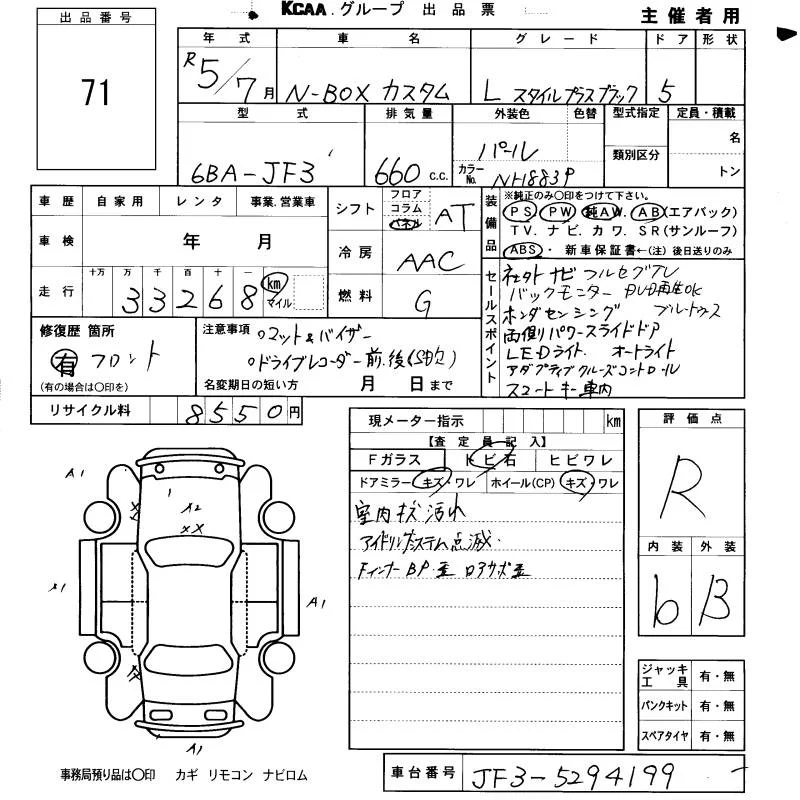 出品番号
71
KCAA.グループ 出品票
主催者用
年式 車名 グレード ドア 形状
R5/7月 N-BOX カスタム L スタイルプラスブラック 5
型式 排気量 外装色 色替 型式指定 定員・積載
6BA-JF3 660 c.c. パール カラーNo. NH883P 類別区分 名 トン
車歴 自家用 レンタ 事業.営業車
車検 年 月
走行 十万 万 千 百 十 一
33268 km マイル
シフト フロア コラム パネル AT
冷房 AAC
燃料 G
装備品 ※純正のみ〇印をつけて下さい。
PS. PW. 純AW. AB(エアバック)
TV. ナビ. カワ. SR(サンルーフ)
ABS・ 新車保証書←(注)後日送りのみ
セールスポイント
社外ナビ フルセグTV
バックモニター DVD再生OK
ホンダセンシング ブルートゥス
両側パワースライドドア
LEDライト. オートライト
アダプティブクルーズコントロール
スマートキー 車内
修復歴 箇所
有 フロント
(有の場合は〇印を)
注意事項
○マット&バイザー
○ドライブレコーダー前.後
名変期日の短い方 月 日まで
リサイクル料 8550円
現メーター指示 km
【査定員記入】
Fガラス トビ石 ヒビワレ
ドアミラー キズ・ワレ ホイール(CP) キズ・ワレ
室内キズ汚れ
アイドリングシステム点滅.
FインナーBP.歪 ロアサポ歪
評価点
R
内装 外装
b B
ジャッキ工具 有・無
パンクキット 有・無
スペアタイヤ 有・無
A1
A2
XX
X1
A1
A1
事務局預り品は〇印 カギ リモコン ナビロム
車台番号 JF3-5294199